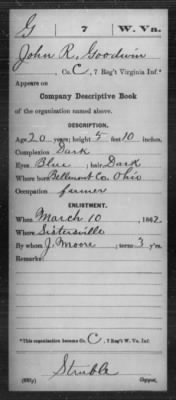 G 7 W. Va.
John R. Goodwin
, Co. C, 7 Reg't Virginia Inf.*
Appears on
Company Descriptive Book
of the organization named above.
DESCRIPTION.
Age 20 years; height 5 feet 10 inches.
Complexion Dark
Eyes Blue; hair Dark
Where born Bellmont Co. Ohio
Occupation farmer
ENLISTMENT.
When March 10, 1862.
Where Sistersville
By whom J. Moore; term 3 y'rs.
Remarks:
*This organization became Co. C, 7 Reg't W. Va. Inf.
Struble
Copyist.